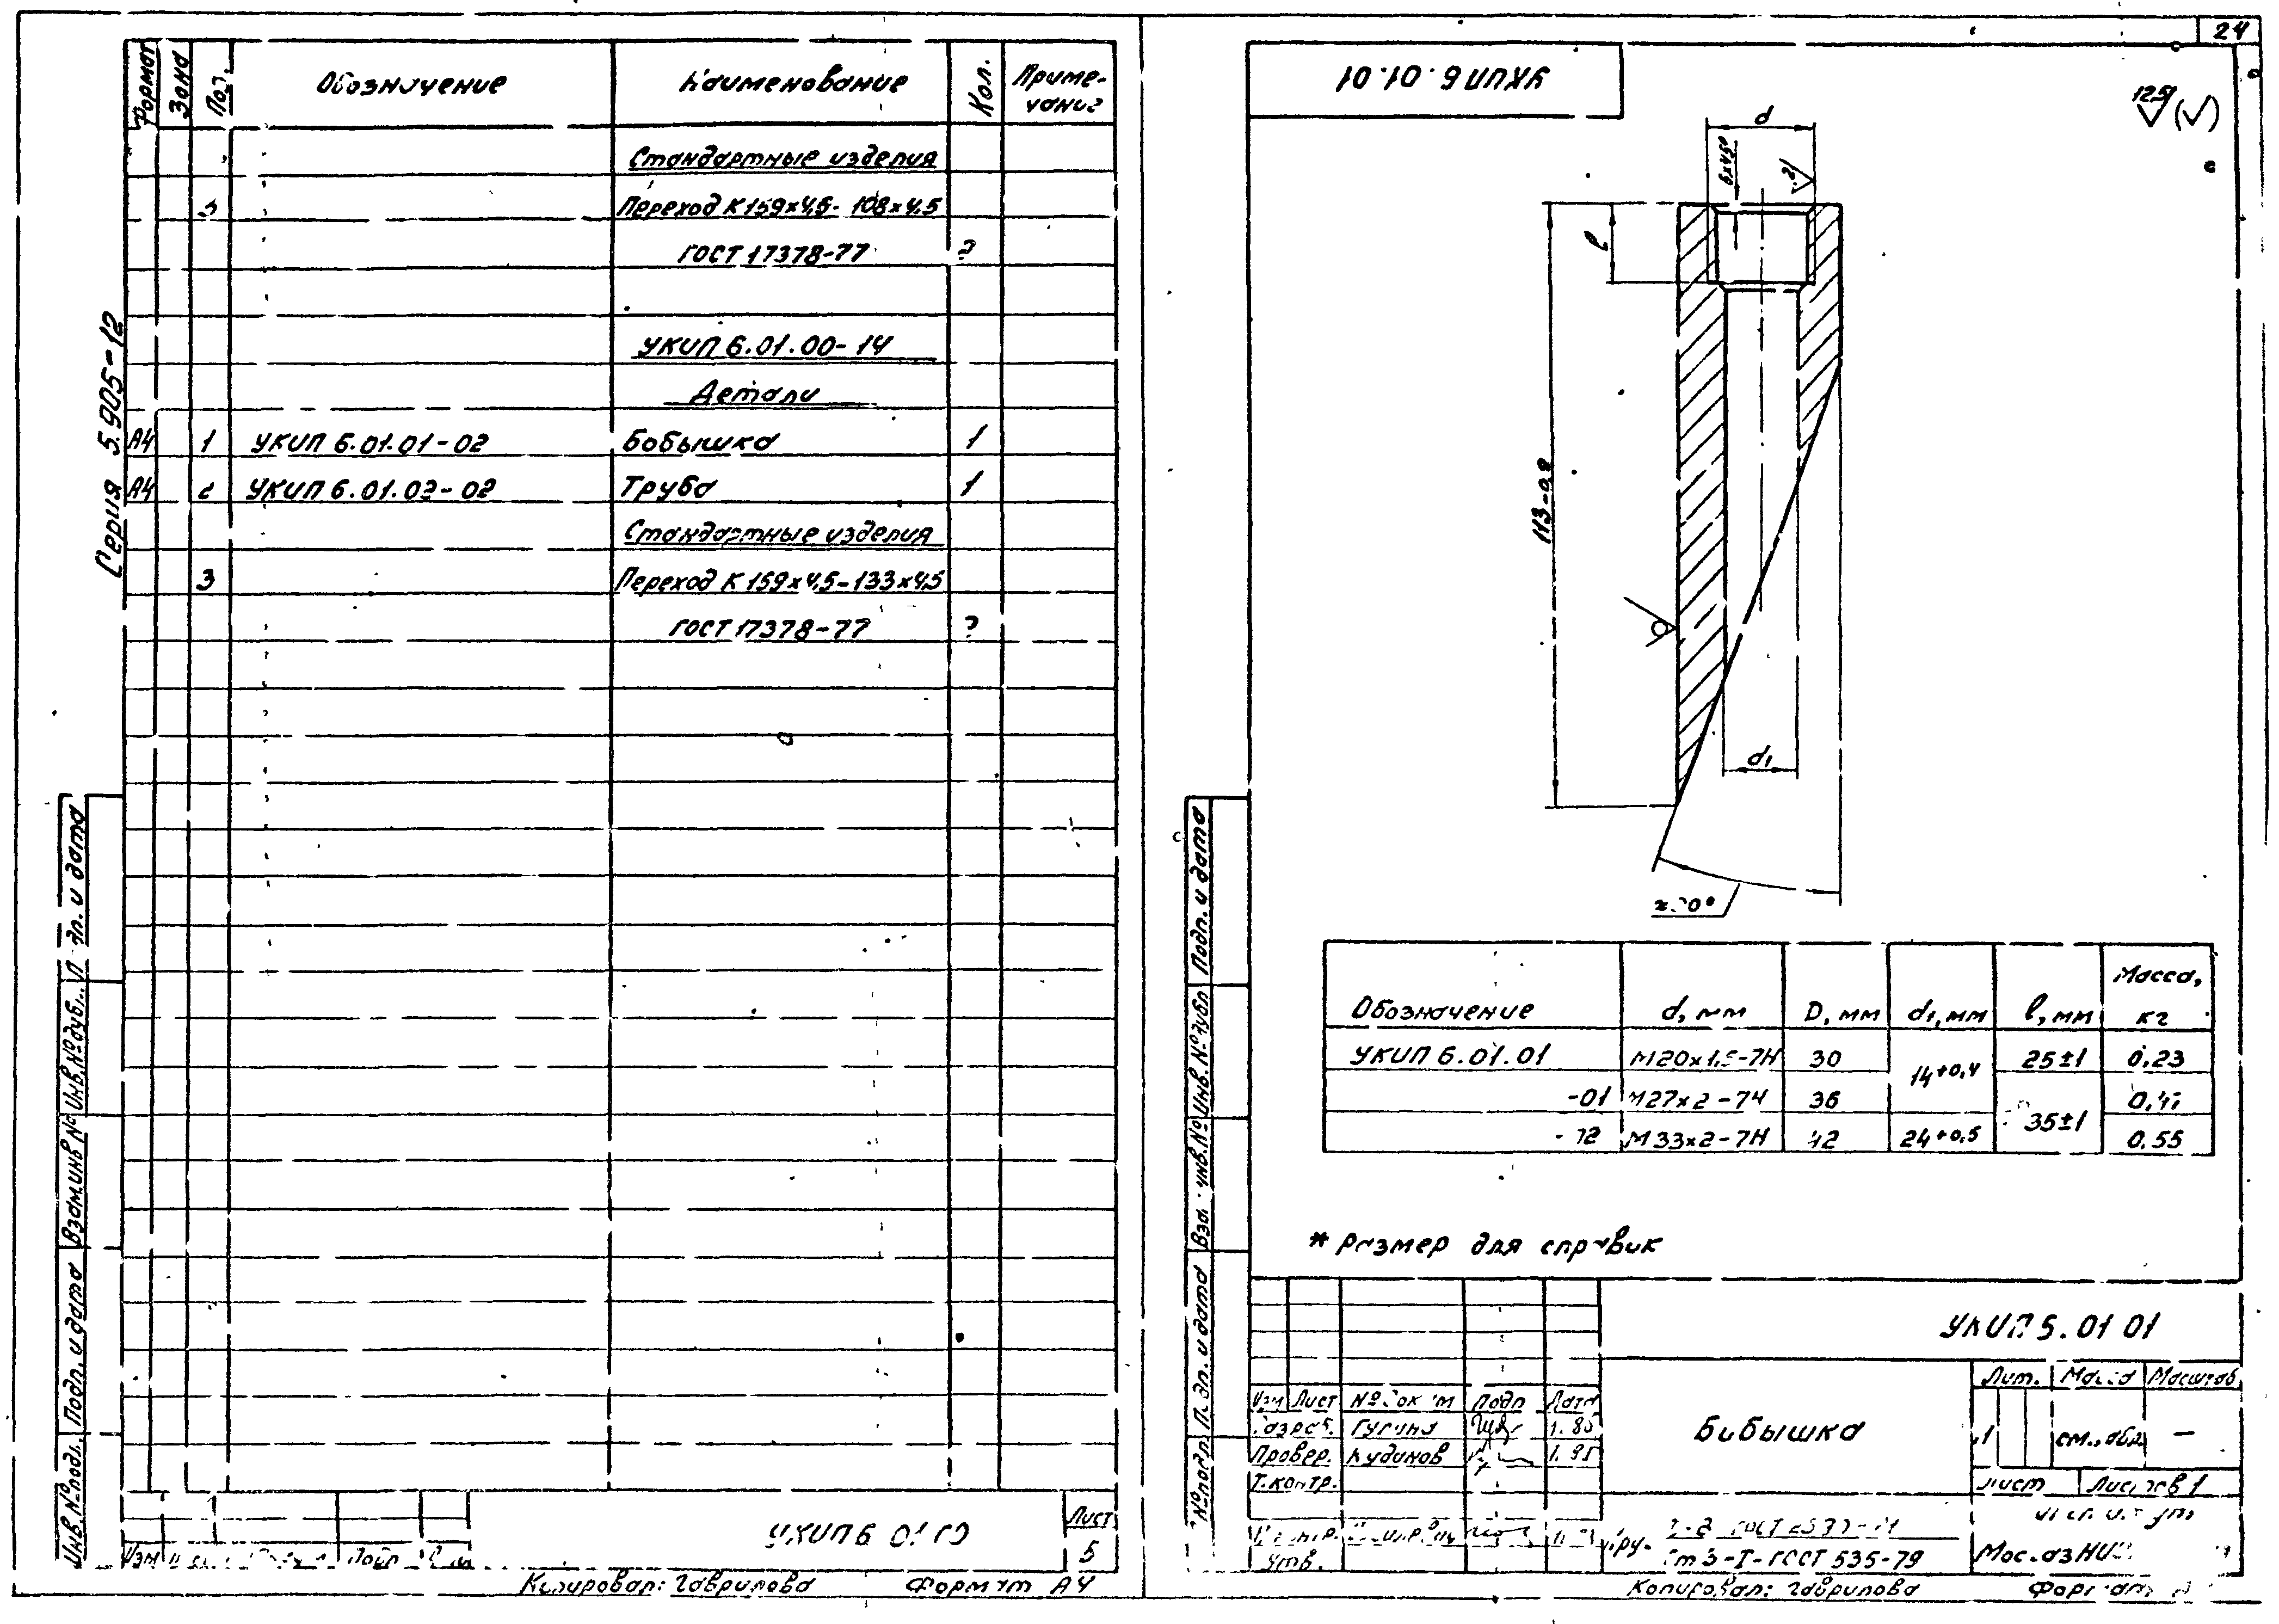 Формат Зона Поз. Обозначение Наименование Кол. Приме-
чание
Стандартные изделия
Переход К159×4,5- 108×4,5
ГОСТ 17378-77
УКИП 6.01.00-14
Детали
А4 1 УКИП 6.01.01-02 Бобышка 1
А4 2 УКИП 6.01.02-02 Труба 1
Стандартные изделия
3 Переход К 159×4,5-133×4,5
ГОСТ 17378-77
Серия 5.905-12
Подп. и дата
Инв.№дубл.
Взам.инв №
Подп. и дата
Инв.№подл.
Изм
Подп
УКИП 6 01
Лист
5
Копировал: Гаврилова Формат А4
24
УКИП 6.01.01
12,5
d
6×45°
l
113-0,8
d₁
Обозначение d, мм D, мм d₁, мм l, мм Масса,
кг
УКИП 6.01.01 М20×1,5-7Н 30 14+0,4 25±1 0,23
-01 М27×2-7Н 36 35±1
М33×2-7Н 42 24+0,5 0,55
* Размер для справок
Подп. и дата
Инв.№дубл
инв.№
Подп. и дата
№подл.
УКИП 01 01
Изм Лист № докум Подп Дата
Разраб.
Провер. Кудинов
Т.контр.
Утв.
Бобышка
Лит. Масса Масштаб
см. табл. —
Лист Листов 1
Ст 3-I-ГОСТ 535-79
Копировал: Гаврилова Формат